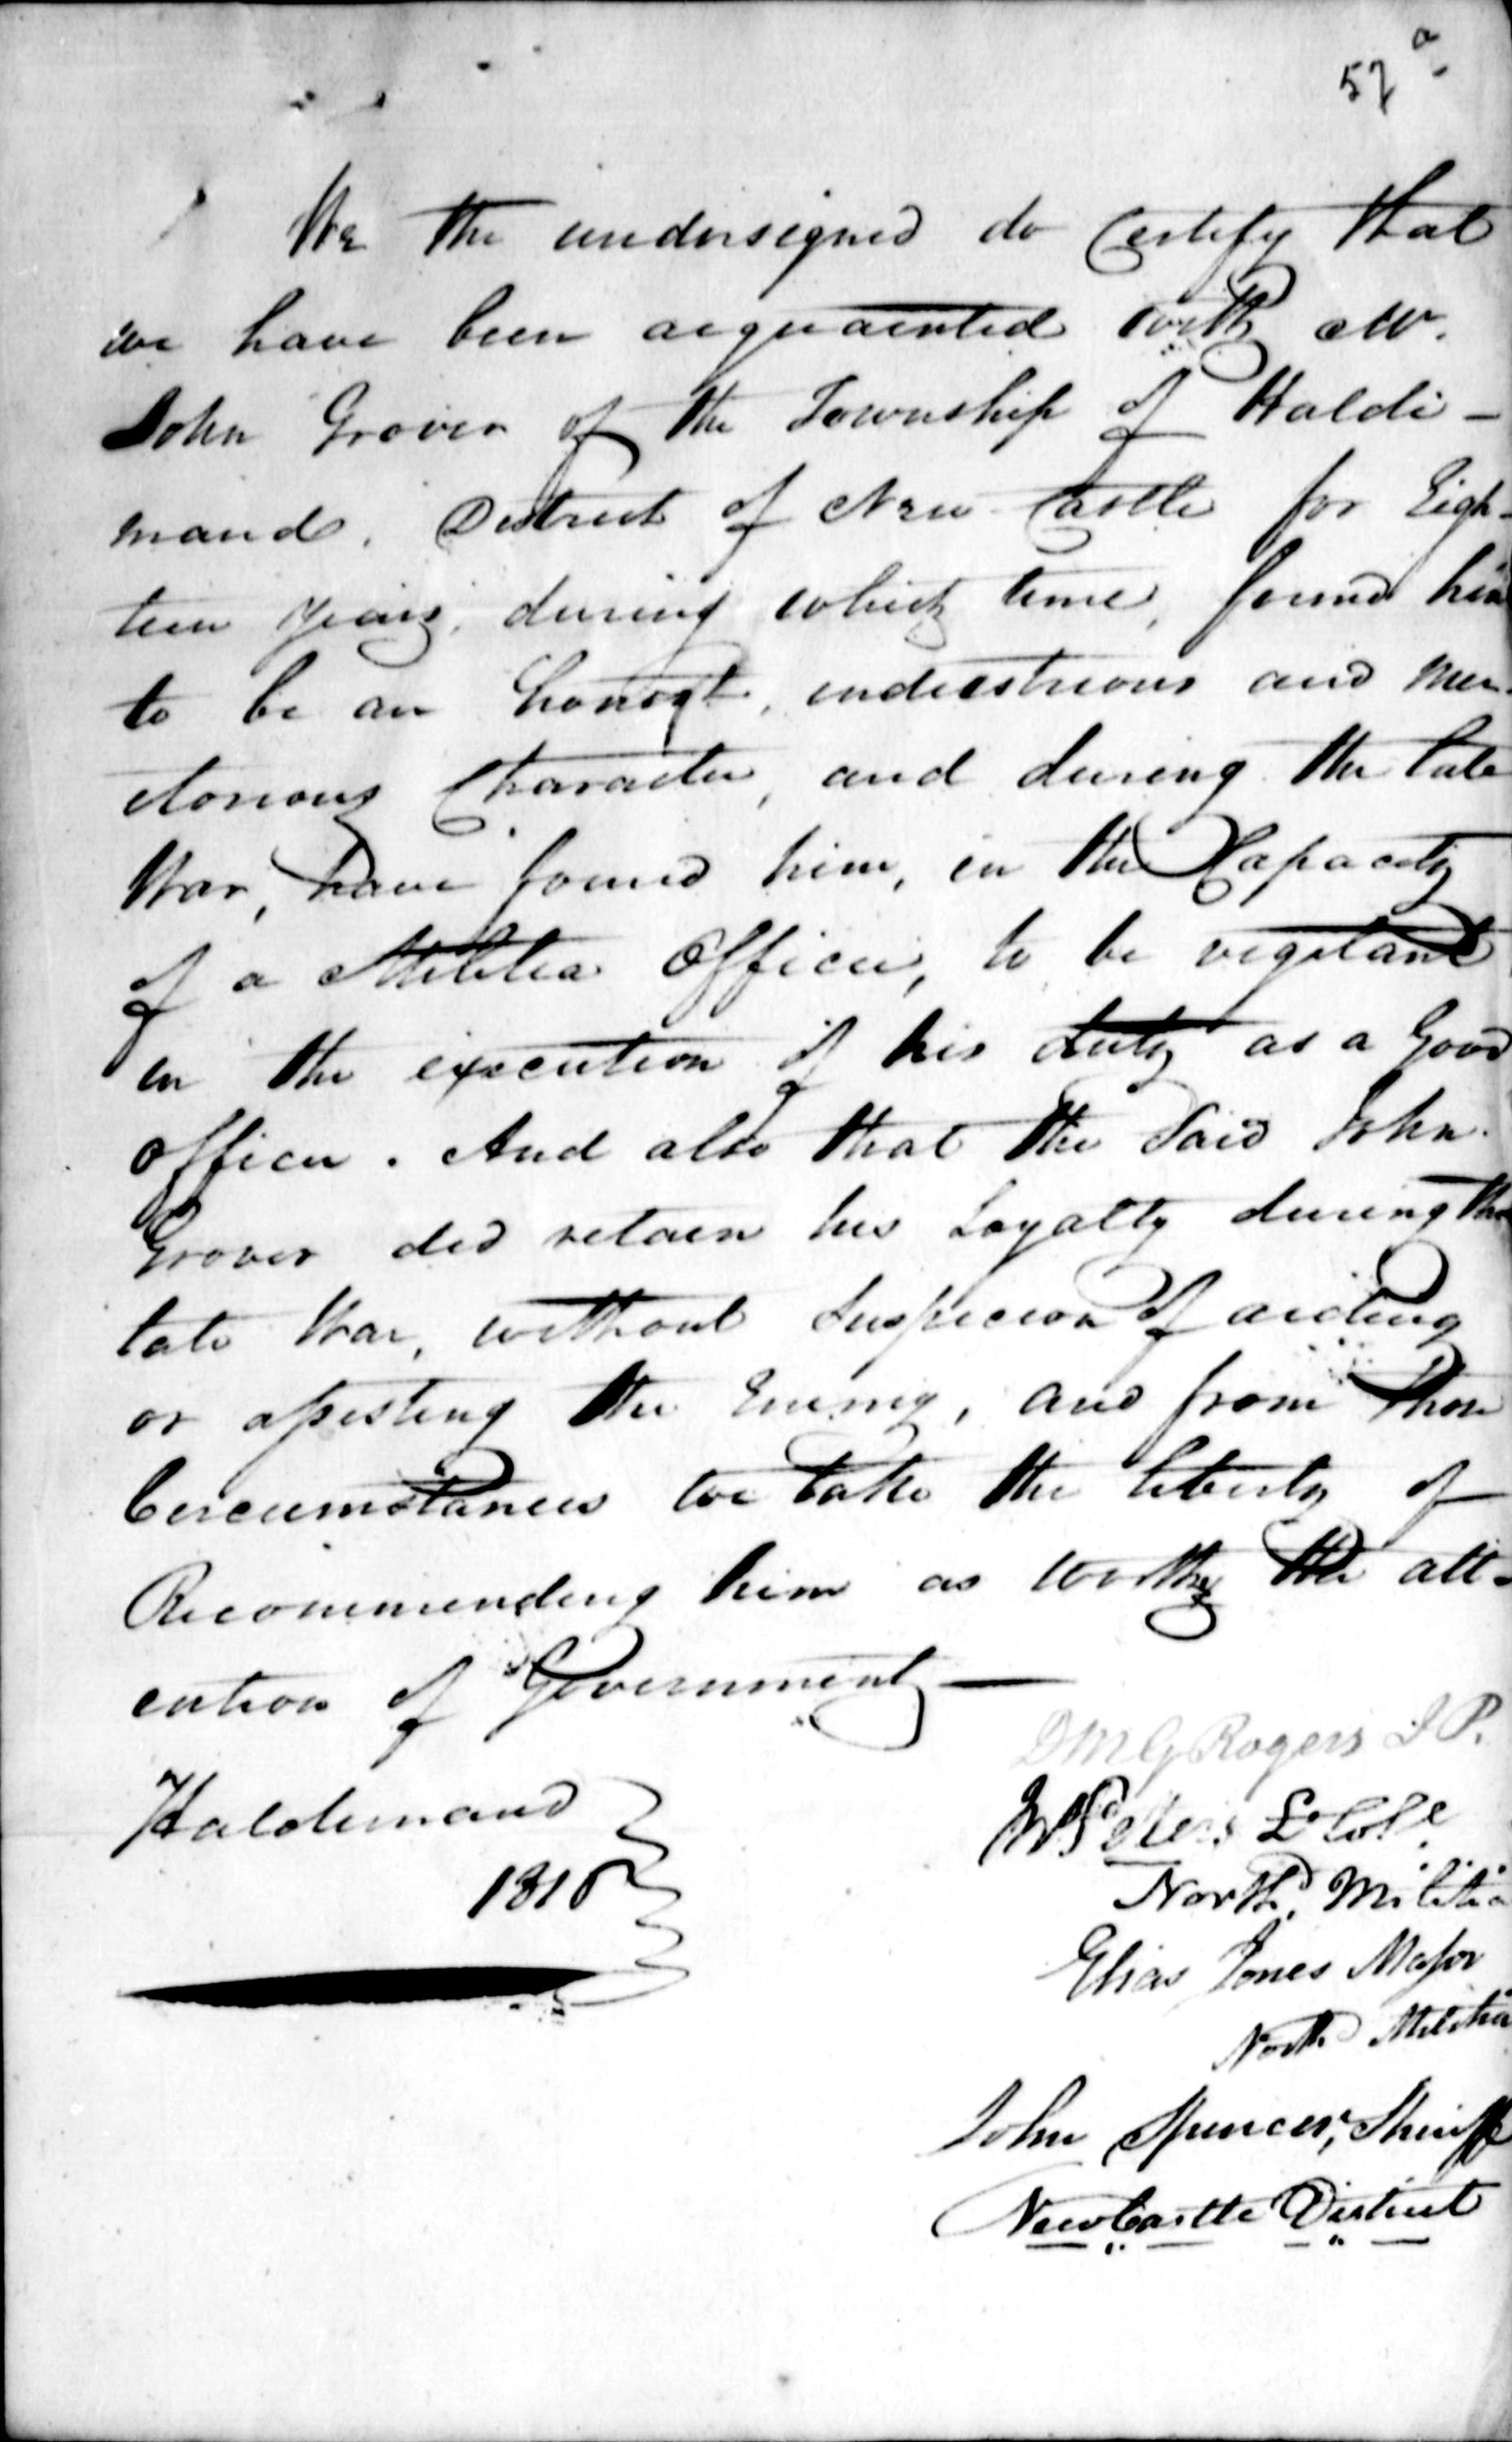 57 a
We the undersigned do Certify that
we have been acquainted with Mr.
John Grover of the Township of Haldi-
mand, District of New Castle for Eigh-
teen years, during which time, found him
to be an honest, industrious and mer-
itorious Character, and during the late
War, have found him, in the Capacity
of a Militia Officer, to be vigilant
in the execution of his duty as a Good
officer. And also that the Said John
Grover did retain his Loyalty during the
late War, without Suspicion of aiding
or assisting the Enemy, and from those
Circumstances we take the liberty of
Recommending him as worthy the att-
ention of Government —
DMG Rogers J P.
Peters Lt Col
Haldimand
North.d Militia
Elias Jones Major
North.d Militia
John Spencer, Sheriff
NewCastle District